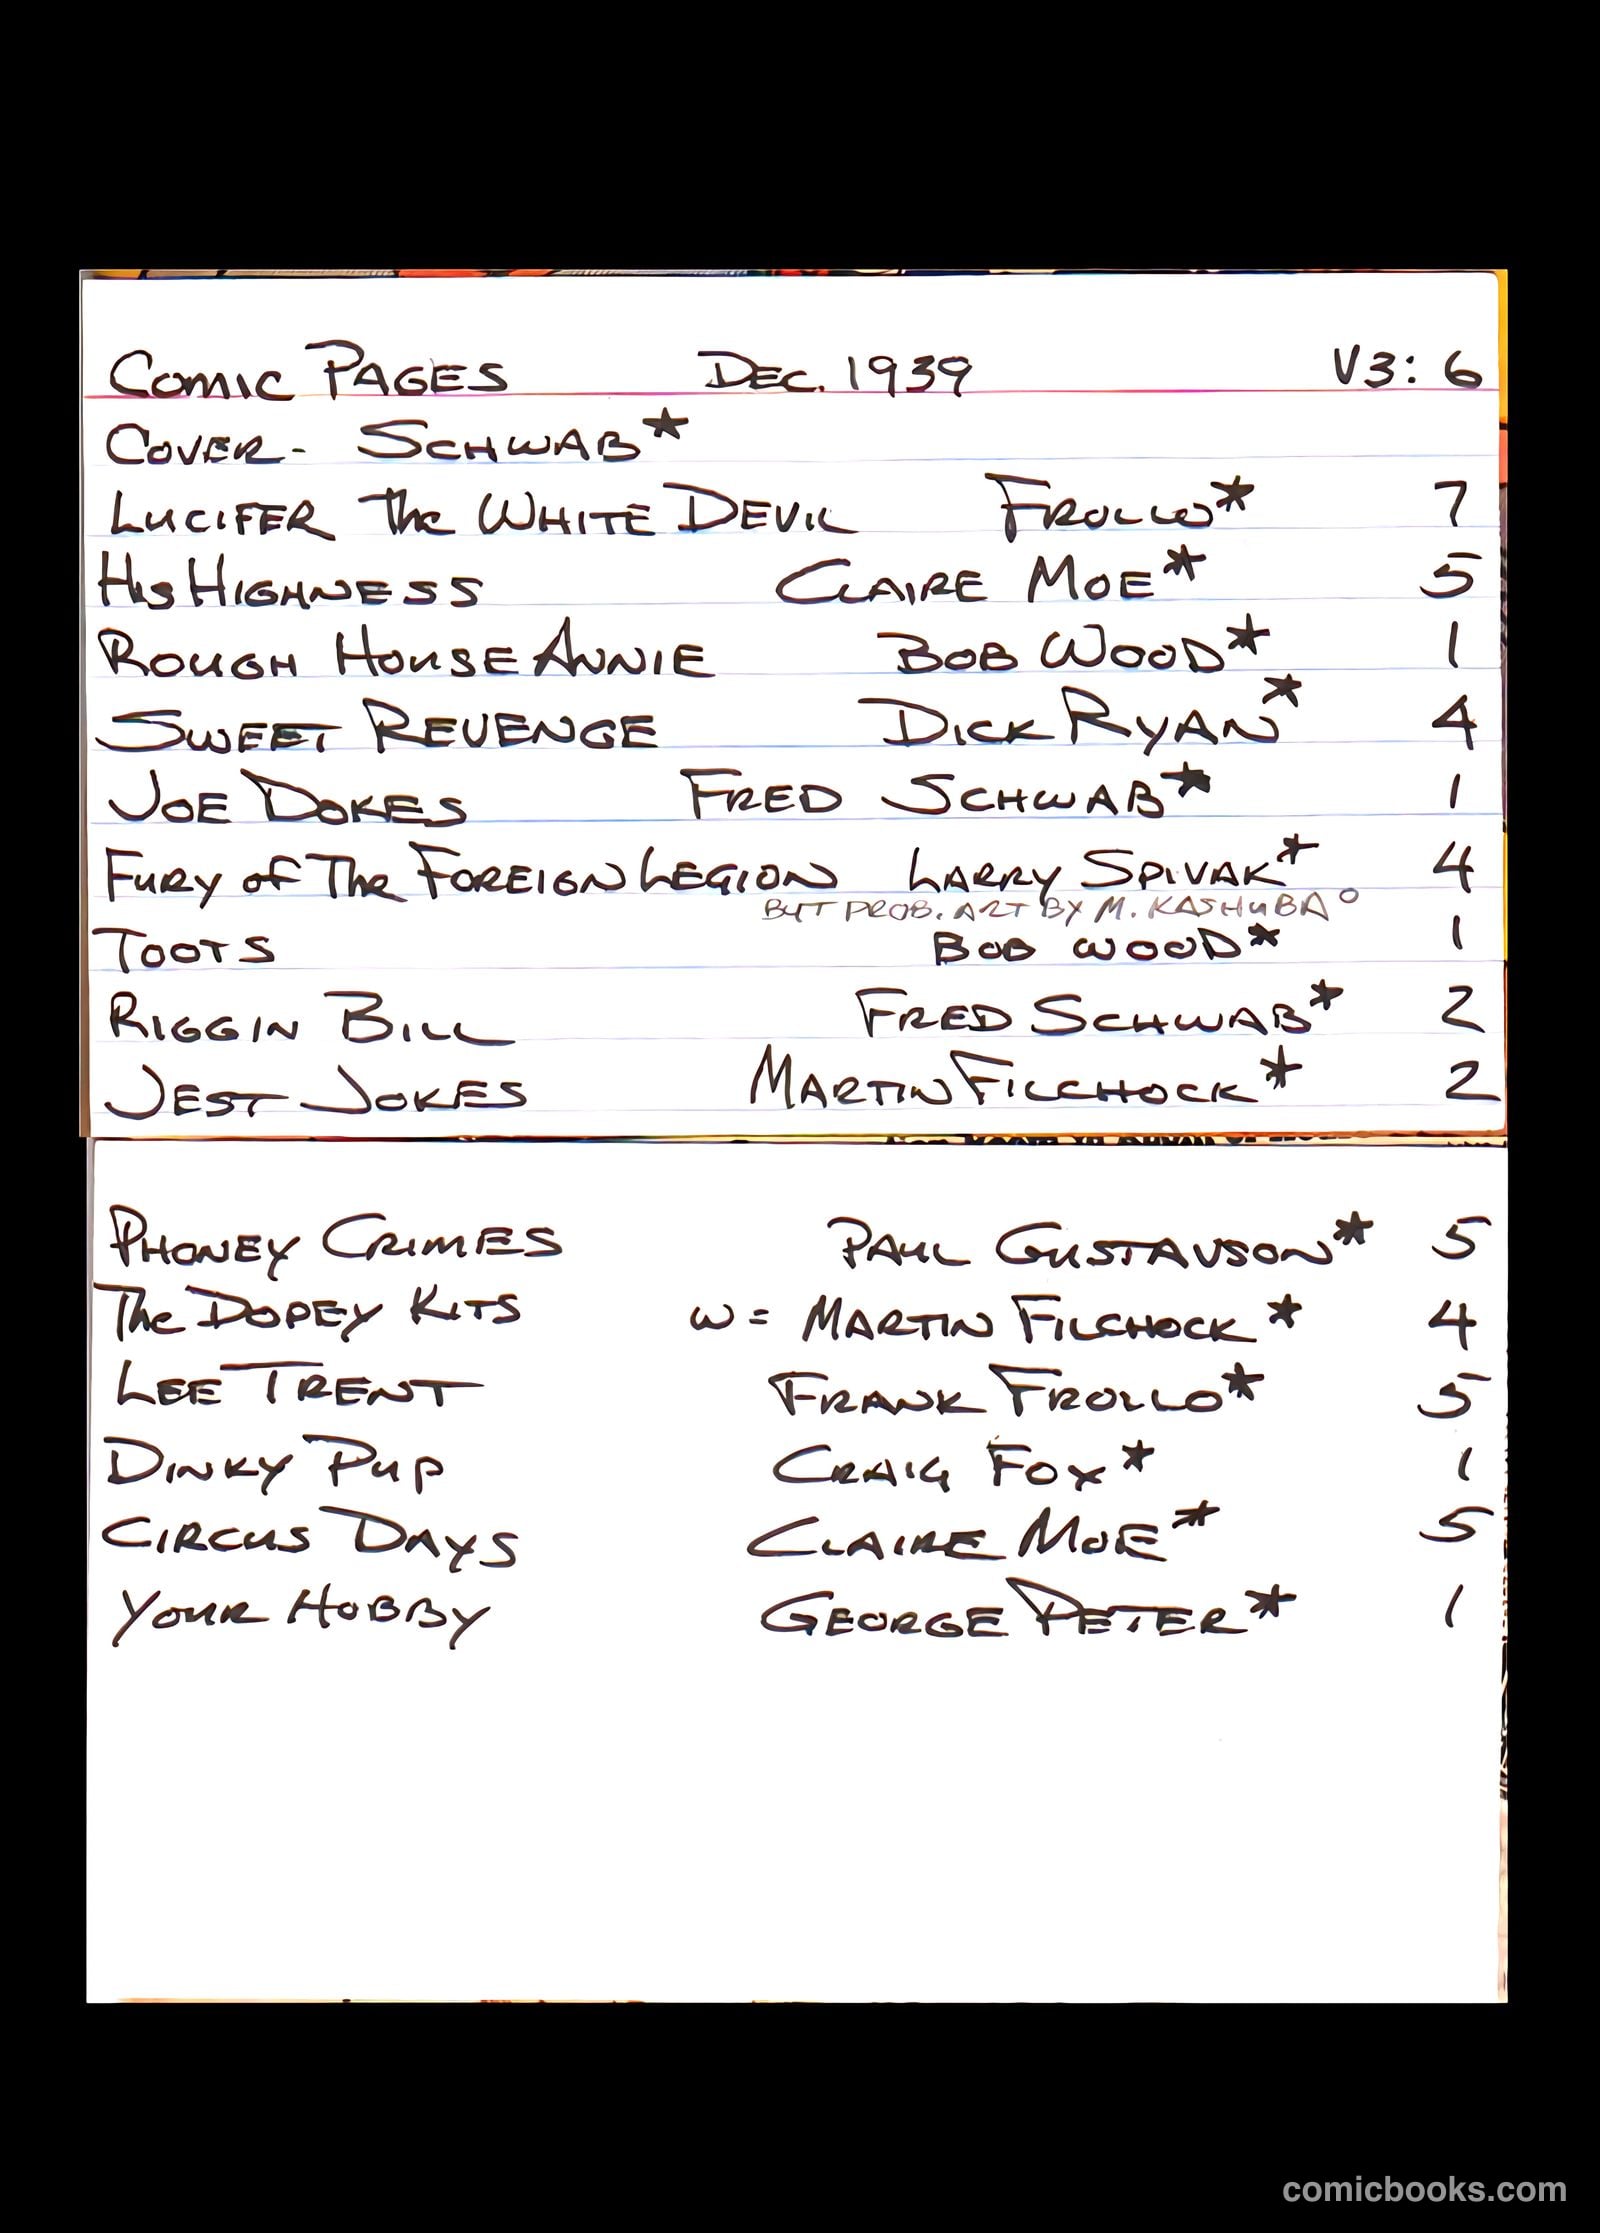 Comic Pages Dec. 1939 V3: 6
Cover- Schwab*
Lucifer The White Devil Frollo* 7
His Highness Claire Moe* 5
Rough House Annie Bob Wood* 1
Sweet Revenge Dick Ryan* 4
Joe Dokes Fred Schwab* 1
Fury of The Foreign Legion Larry Spivak* 4
But prob. art by M. Kashuba°
Toots Bob Wood* 1
Riggin Bill Fred Schwab* 2
Jest Jokes Martin Filchock* 2
Phoney Crimes Paul Gustavson* 5
The Dopey Kits w= Martin Filchock* 4
Lee Trent Frank Frollo* 5
Dinky Pup Craig Fox* 1
Circus Days Claire Moe* 5
Your Hobby George Peter* 1
comicbooks.com